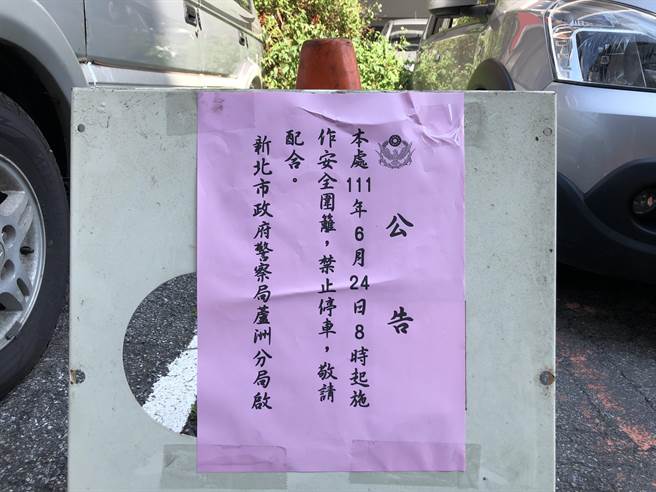 公告
本處111年6月24日8時起施
作安全圍籬，禁止停車，敬請
配合。
新北市政府警察局蘆洲分局啟